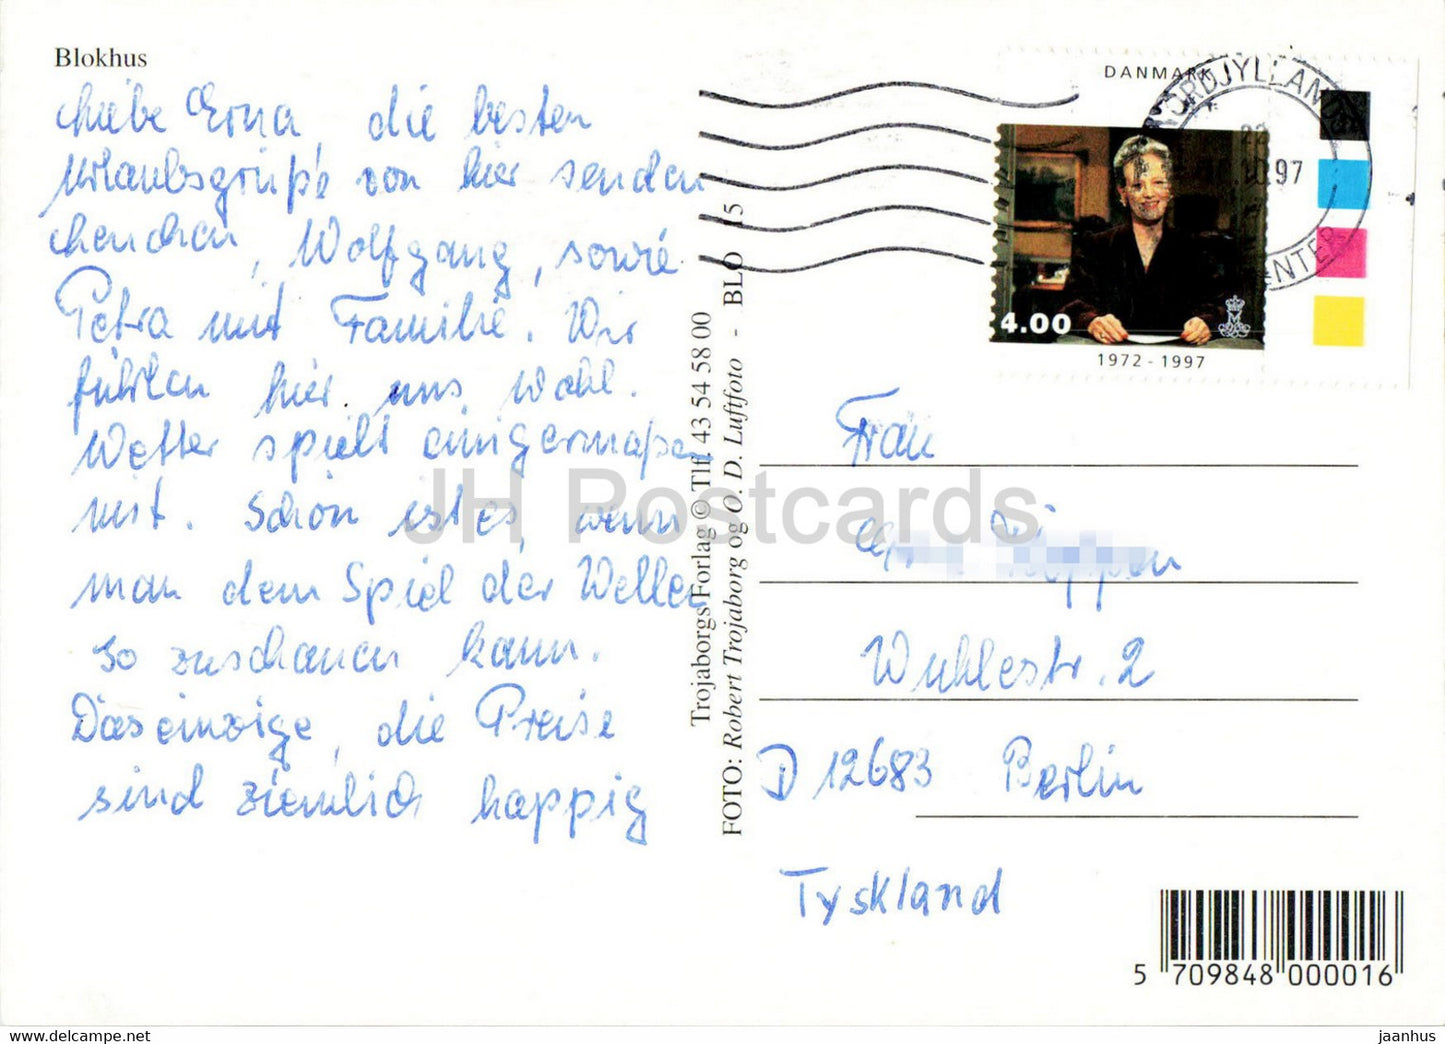 Blokhus
Liebe Erna, die besten
Urlaubsgrüße von hier senden
Lenchen, Wolfgang, sowie
Petra mit Familie. Wir
fühlen hier uns wohl.
Wetter spielt einigermaßen
mit. Schön ist es, wenn
man dem Spiel der Wellen
so zuschauen kann.
Das einzige, die Preise
sind ziemlich happig
Trojaborgs Forlag © Tlf. 43 54 58 00
FOTO: Robert Trojaborg og O. D. Luftfoto - BLO 15
DANMARK
4.00
1972 - 1997
NORDJYLLANDS
97
CENTER
Frau
Wuhlestr. 2
D 12683 Berlin
Tyskland
5 709848 000016
JH Postcards
www.delcampe.net
jaanhus